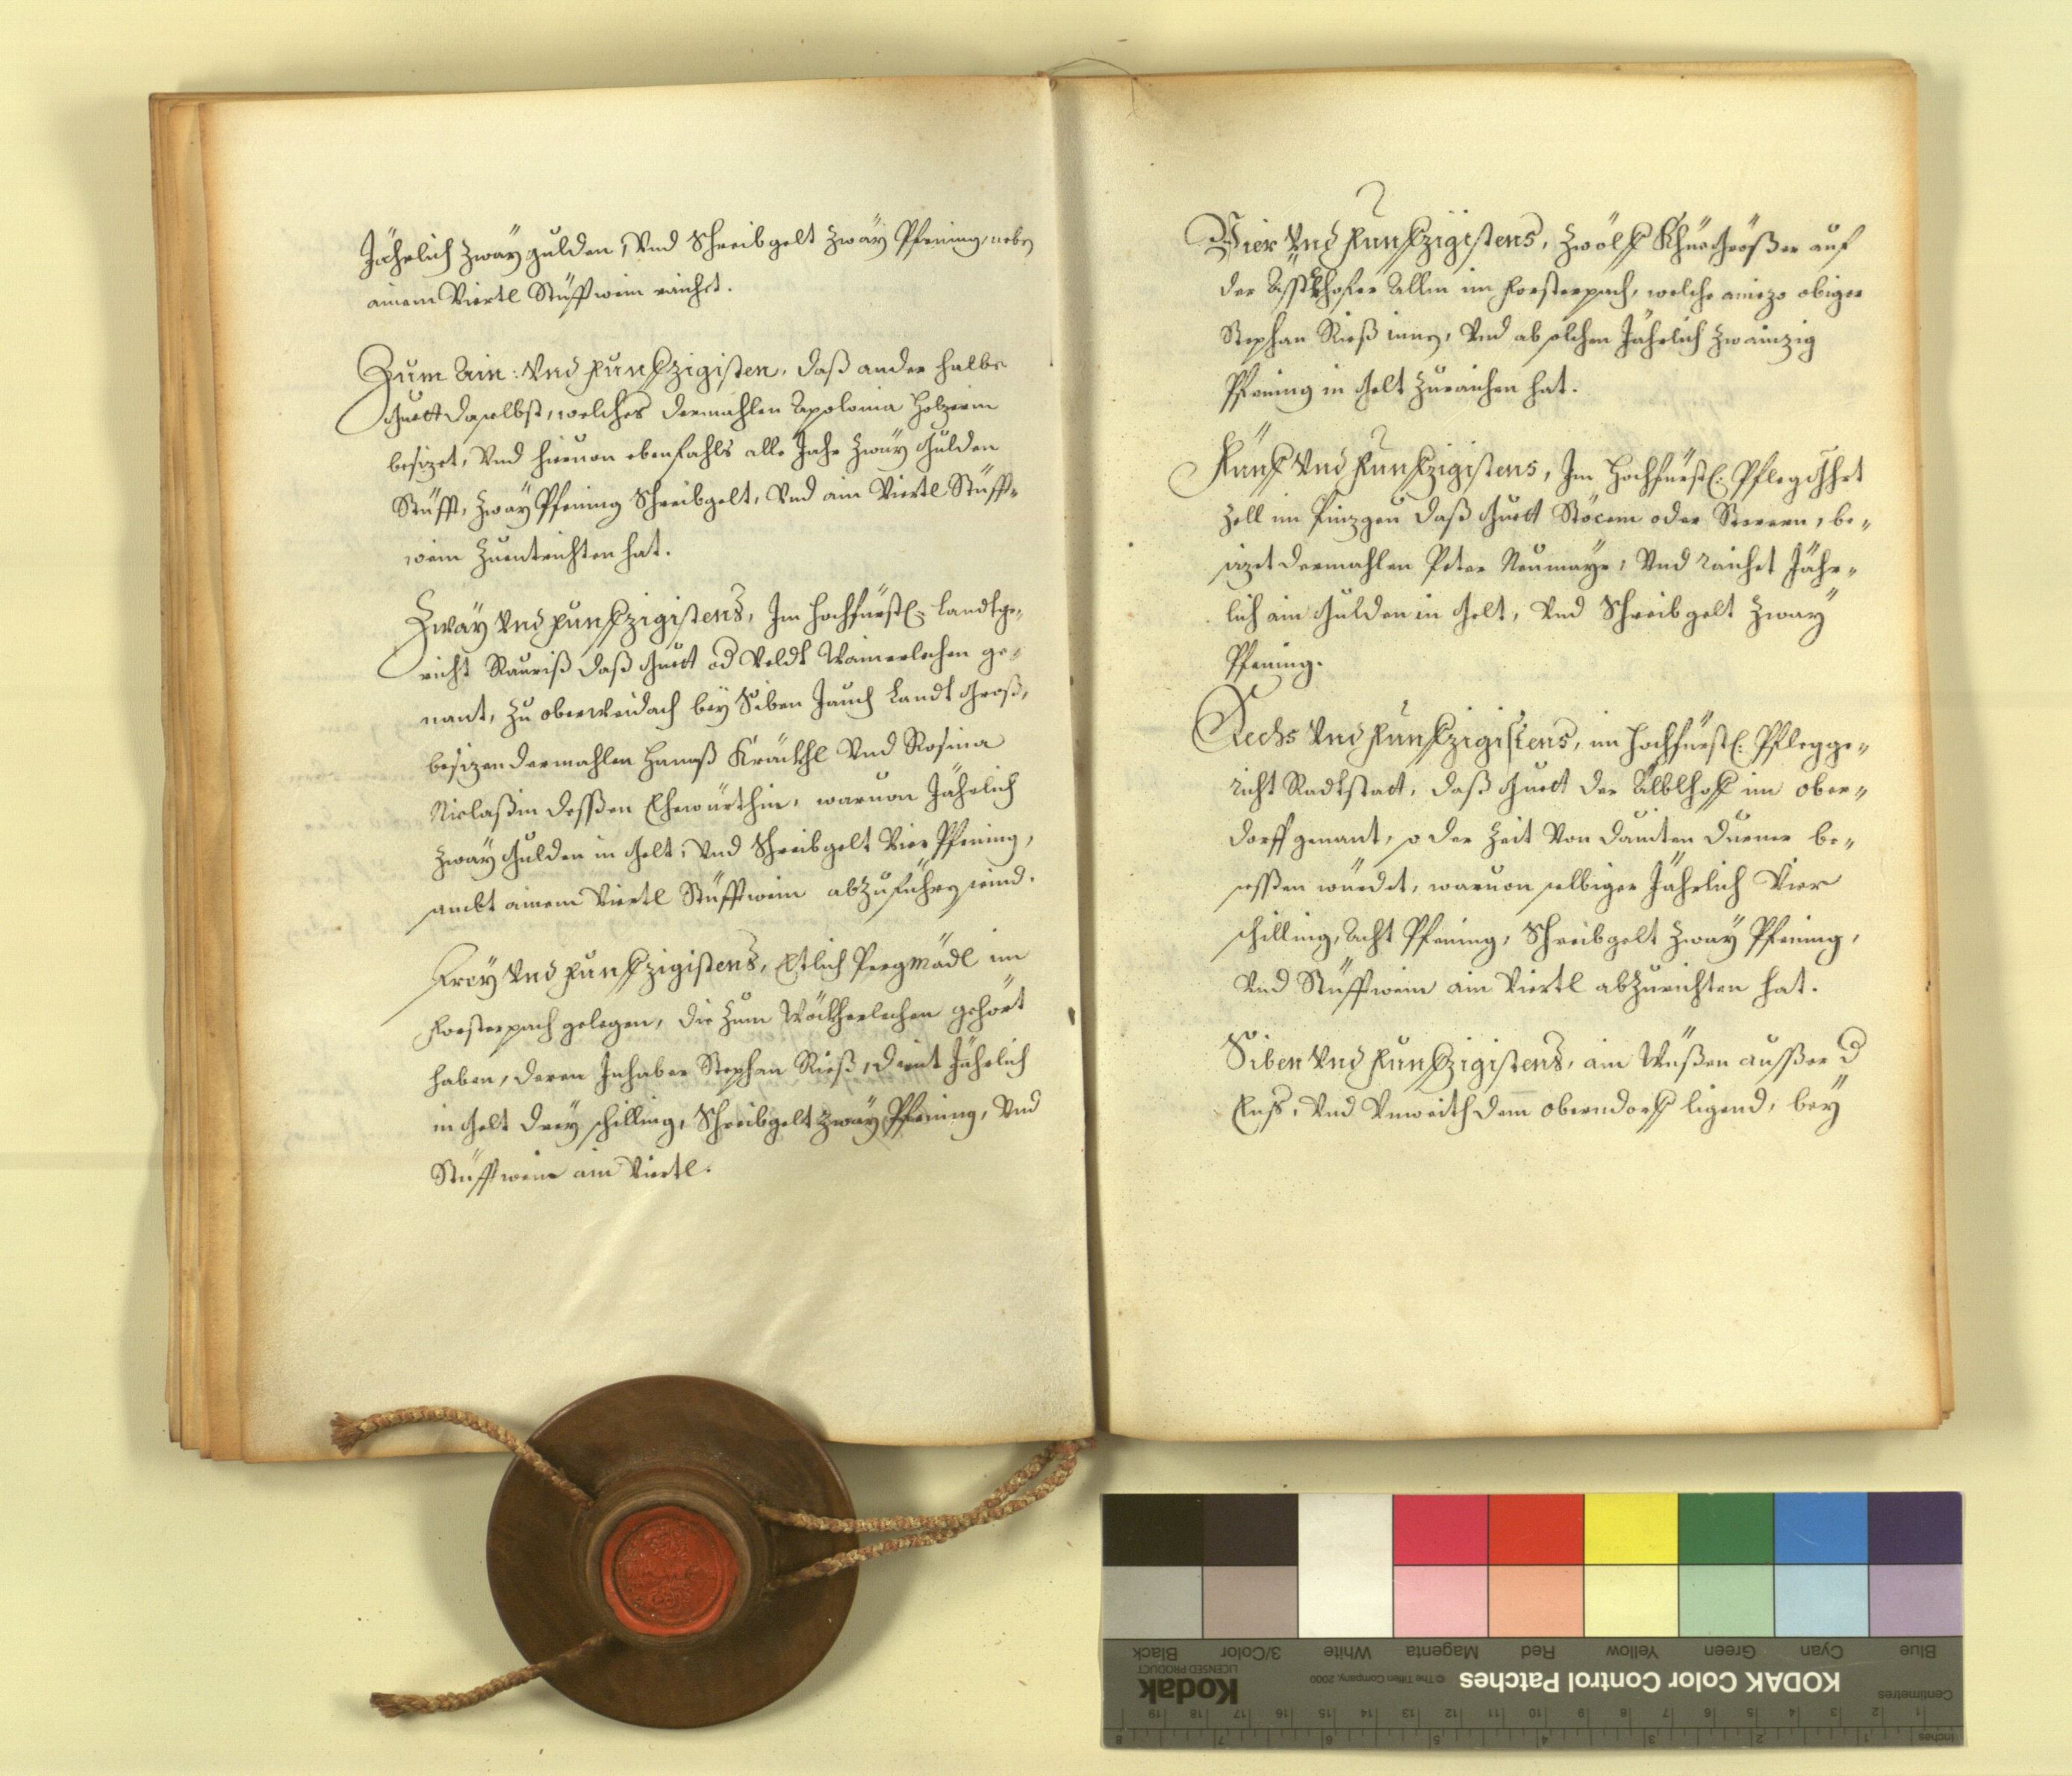 Jährlich zway gulden, Vnd Schreibgelt zway Pfening, neben
ainem Viertl Stüfftwein raichet.
Zum Ain: Vnd funfzigisten, daß ander halbe
Guett daselbst, welches dermahlen Apolonia Holzerin
besizet, Vnd hieuon ebenfahls alle Jahr zway Gulden
Stüfft, zway Pfening Schreibgelt, Vnd ain Viertl Stüfft-
wein zuentrichten hat.
Zway Vnd funfzigistens, Im Hochfürstl: Landtge-
richt Rauriß daß Guett od Veldt Wainerlechen ge-
nant, zu oberweidach bey Siben Jauch Landt Groß,
besizen dermahlen Hannß Kräckhl Vnd Rosina
Niclaßin dessen Ehewürthin, waruon Jährlich
zway Gulden in Gelt, Vnd Schreibgelt Vier Pfening,
sambt ainem Viertl Stüfftwein abzuführen seind.
Drey Vnd funfzigistens, Etlich Pergmädl im
Forsterpach gelegen, die zum Wöckherlechen gehört
haben, deren Inhaber Stephan Rieß, dient Jährlich
in Gelt drey schilling, Schreibgelt zway Pfening, Vnd
Stüfftwein ain Viertl.
Vier Vnd funfzigistens, zwölf Khüe Größer auf
der Alln im Forsterpach, welche aniezo obiger
Stephan Rieß innen, Vnd ab solchen Jährlich zwainzig
Pfening in Gelt zuraichen hat.
Fünf Vnd funfzigistens, Im Hochfürstl: Pflegghrt
Zell im Pinzgeu daß Guett oder, be-
sizet dermahlen Peter Neumayr, Vnd raichet Jähr-
lich ain Gulden in Gelt, Vnd Schreibgelt zway
Pfening.
Sechs Vnd funfzigistens, im Hochfürstl: Pflegge-
richt Radtstatt, daß Guett der Älblhof im ober-
dorff genant, so der Zeit Von be-
sessen würdet, waruon selbiger Jährlich Vier
schilling, Acht Pfening, Schreibgelt zway Pfening,
Vnd Stüfftwein ain Viertl abzurichten hat.
Siben Vnd funfzigistens, ain Wüßen ausser d
Enß, Vnd Vnweith dem oberndorf ligend, bey
Blue Cyan Green Yellow Red Magenta White 3/Color Black
KODAK Color Control Patches © The Tiffen Company, 2000 Kodak
LICENSED PRODUCT
Centimetres 1 2 3 4 5 6 7 8 9 10 11 12 13 14 15 16 17 18 19
Inches 1 2 3 4 5 6 7 8